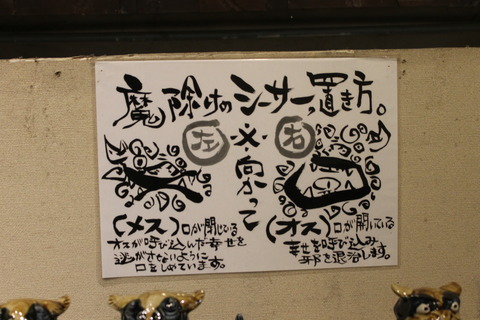 魔除けのシーサーの置き方。
左 ※向かって 右
(メス)口が閉じている
オスが呼び込んだ幸せを
逃がさないように
口をしめています。
(オス)口が開いている
幸せを呼び込み
邪を退治します。